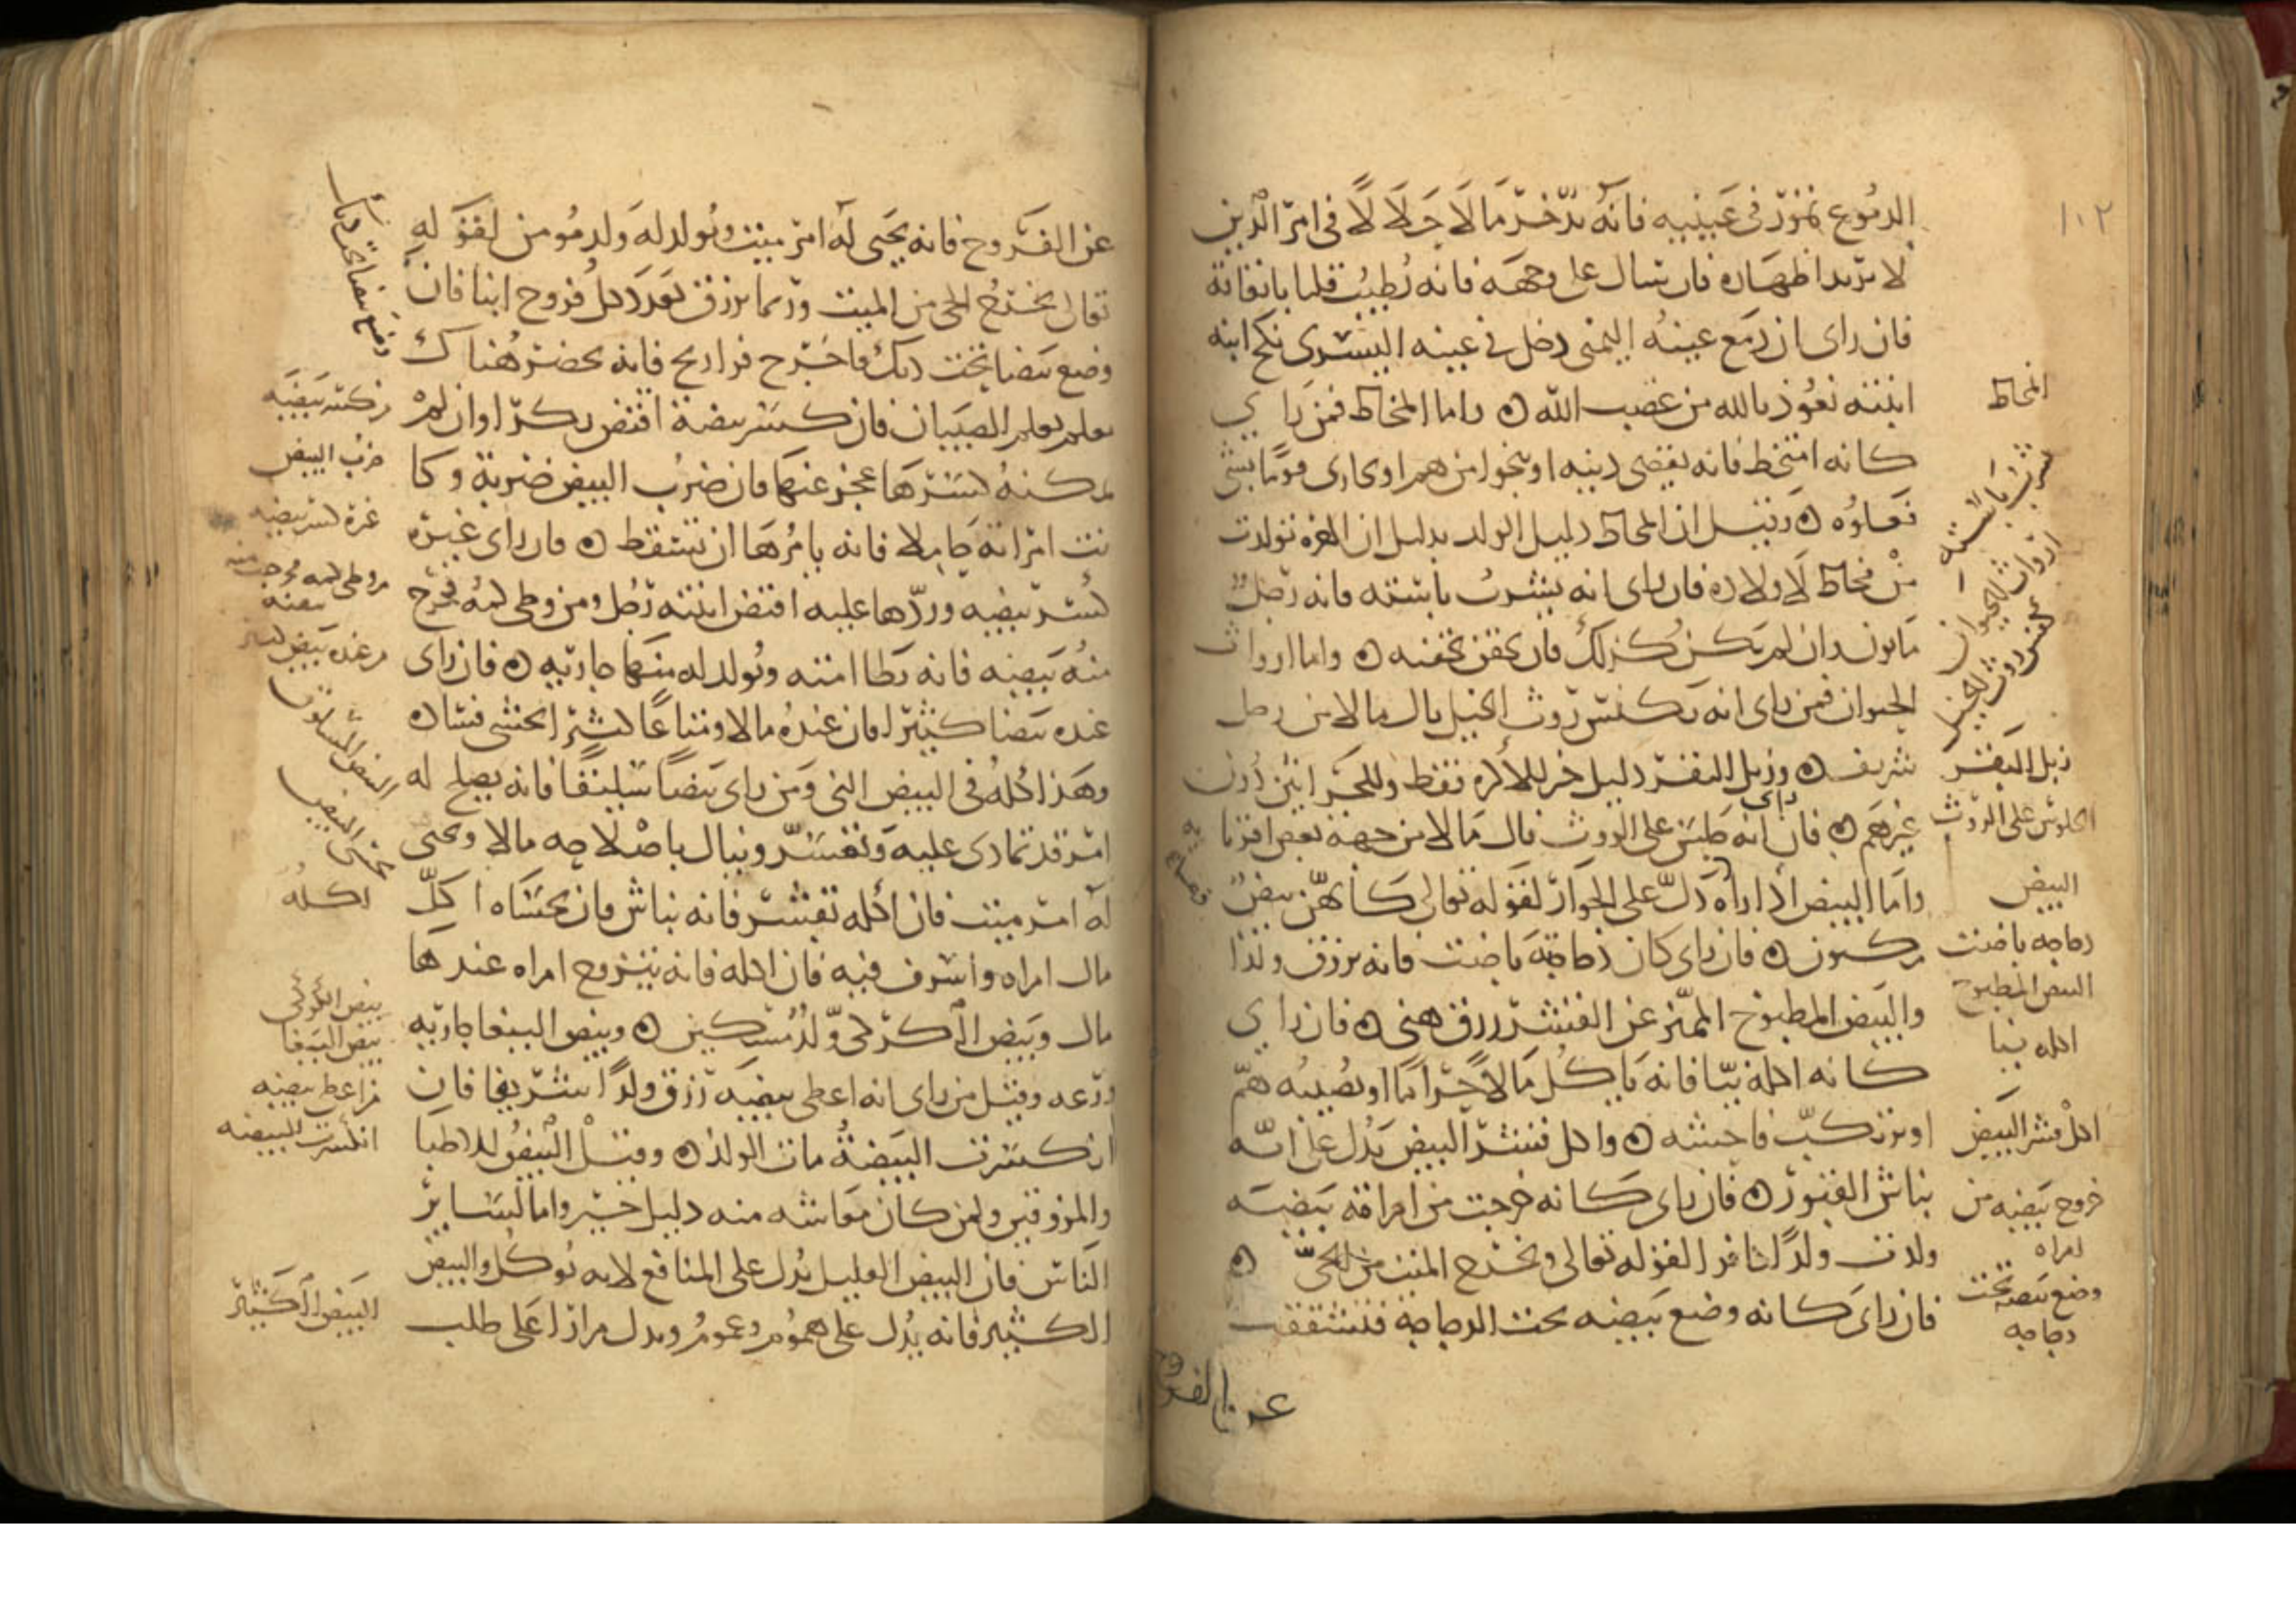 ١٠٢
الدموع تمور في عينيه فانه يدخر مالا حلالا في امر الدين
لا يريد اظهاره فان سال على وجهه فانه يطيب قلبا بانفاقه
فان راى ان دمع عينه اليمنى دخل في عينه اليسرى نكح ابنه
ابنته نعوذ بالله من غضب الله ه واما المخاط فمن راى
كانه امتخط فانه يقضي دينه او ينجوا من هم او يجازى قوما بشي
فعلوه ه وقيل ان المخاط دليل الولد بدليل ان الهره تولدت
من مخاط الاسد فان راى انه يشرب باسته فانه رجل
مابون وان لم يكن كذلك فان يحقن بحقنه ه واما ارواث
الحيوان فمن راى انه يكنس روث الخيل نال مالا من رجل
شريف ه وزبل البقر دليل خير للاكره فقط وللحراثين دون
غيرهم ه فان راى انه جلس على الروث نال مالا من جهة بعض اقربايه
واما البيض اذا راه دل على الجوار لقوله تعالى كانهن بيض
مكنون ه فان راى كان دجاجة باضت فانه يرزق ولدا
والبيض المطبوخ المميز عن القشر رزق هني ه فان راى
كانه اكله نيا فانه ياكل مالا حراما او يصيبه هم
او يرتكب فاحشه ه واكل قشر البيض يدل على انه
نباش القبور ه فان راى كانه خرجت من امراته بيضه
ولدت ولدا كافرا لقوله تعالى ويخرج الميت من الحي ه
فان راى كانه وضع بيضه تحت الدجاجه فتشققت
عن الفروج
المخاط
شرب باسته
ارواث الحيوان
كنس روث الخيل
زبل البقر
الجلوس على الروث
البيض
دجاجه باضت
البيض المطبوخ
اكله نيا
اكل قشر البيض
خروج بيضه من
امراه
وضع بيضه تحت
دجاجه
عن الفروج فانه يحيى له امر ميت ويولد له ولد مومن لقوله
تعالى يخرج الحي من الميت وربما يرزق بعدد كل فروج ابنا فان
وضع بيضا تحت ديك فاخرج فراريج فانه يحضر هناك
معلم يعلم الصبيان فان كسر بيضة افتض بكرا وان لم
يمكنه كسرها عجز عنها فان ضرب البيض ضربة وكا
نت امراته حاملا فانه يامرها ان تسقط ه فان راى غيره
كسر بيضه وردها عليه افتض ابنته رجل ومن وطى كمه فخرج
منه بيضه فانه يطا امته ويولد له منها جاريه ه فان راى
عنده بيضا كثيرا فان عنده مالا ومتاعا كثيرا يخشى فساده
وهذا كله في البيض الني ومن راى بيضا سليقا فانه يصلح له
امر قد تمادى عليه وتعسر وينال باصلاحه مالا ويحيى
له امر ميت فان اكله بقشر فانه نباش فان تحساه اكل
مال امراه واسرف فيه فان اكله فانه يتزوج امراه عندها
مال وبيض الكركي ولد مسكين ه وبيض الببغا جاريه
ورعه وقيل من راى انه اعطى بيضه رزق ولدا شريفا فان
انكسرت البيضة مات الولد ه وقيل البيض للاطبا
والمزوقين ولمن كان معاشه منه دليل خير واما لساير
الناس فان البيض القليل يدل على المنافع لانه يوكل والبيض
الكثير فانه يدل على هموم وغموم ويدل مرارا على طلب
وضع بيضا تحت ديك
من كسر بيضه
ضرب البيض
غيره كسر بيضه
من وطى كمه فخرجت منه
بيضه
من عنده بيض كثير
البيض المسلوق
اكله
بيض الكركي
بيض الببغا
من اعطي بيضه
انكسرت البيضه
البيض الكثير